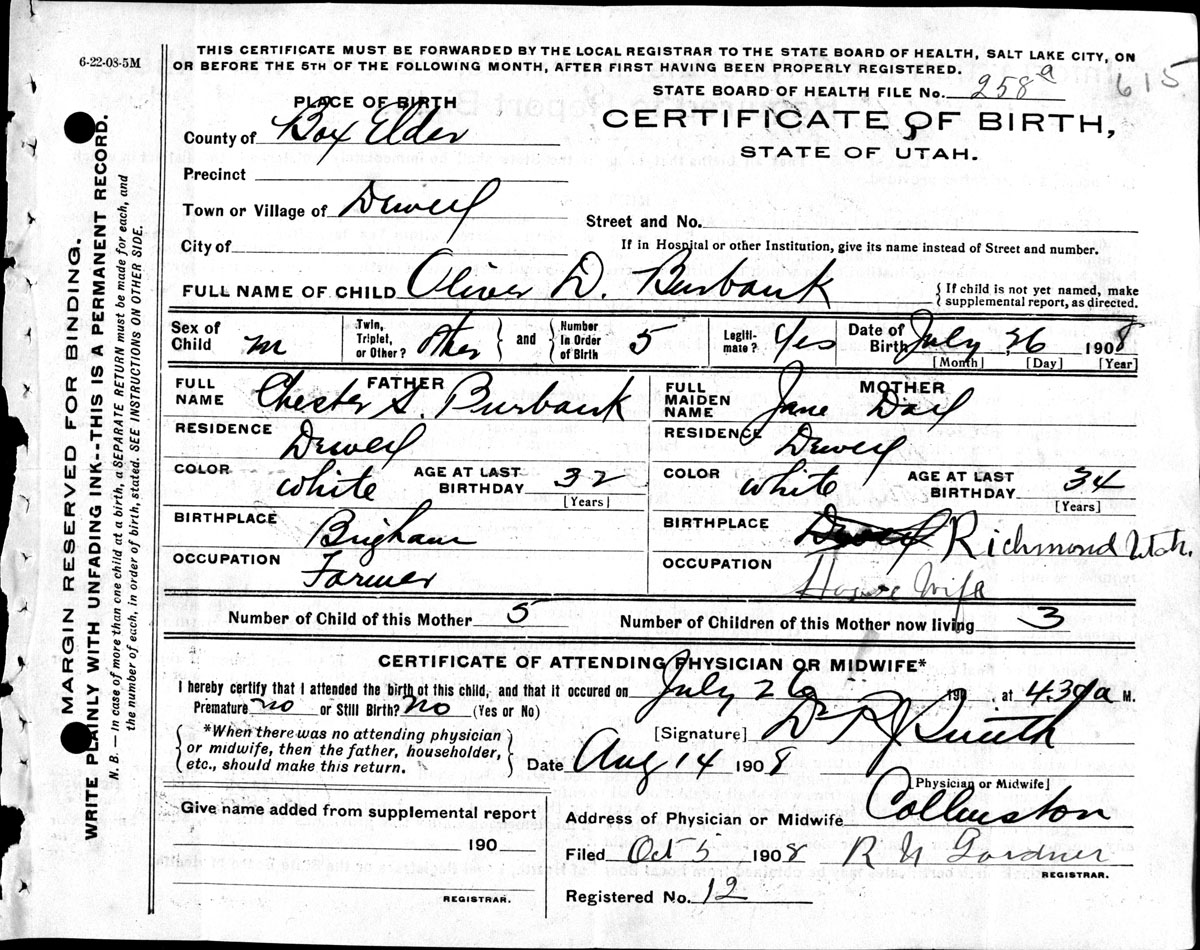 6-22-08-5M
THIS CERTIFICATE MUST BE FORWARDED BY THE LOCAL REGISTRAR TO THE STATE BOARD OF HEALTH, SALT LAKE CITY, ON
OR BEFORE THE 5TH OF THE FOLLOWING MONTH, AFTER FIRST HAVING BEEN PROPERLY REGISTERED.
STATE BOARD OF HEALTH FILE No. 258a 615
PLACE OF BIRTH
CERTIFICATE OF BIRTH,
STATE OF UTAH.
County of Box Elder
Precinct
Town or Village of Dewey
Street and No.
City of
If in Hospital or other Institution, give its name instead of Street and number.
FULL NAME OF CHILD Oliver D. Burbank
{If child is not yet named, make
supplemental report, as directed.
Sex of Child m
Twin, Triplet, or Other? other } and { Number In Order of Birth 5
Legiti-mate? Yes
Date of Birth July 26 1908
[Month] [Day] [Year]
FATHER
FULL NAME Chester S. Burbank
RESIDENCE Dewey
COLOR white AGE AT LAST BIRTHDAY 32
[Years]
BIRTHPLACE Brigham
OCCUPATION Farmer
MOTHER
FULL MAIDEN NAME Jane
RESIDENCE Dewey
COLOR white AGE AT LAST BIRTHDAY 34
[Years]
BIRTHPLACE Dewey Richmond Utah.
OCCUPATION House Wife
Number of Child of this Mother 5 Number of Children of this Mother now living 3
CERTIFICATE OF ATTENDING PHYSICIAN OR MIDWIFE*
I hereby certify that I attended the birth of this child, and that it occured on July 26 190 at 4.30a M.
Premature? no or Still Birth? no (Yes or No)
*When there was no attending physician
or midwife, then the father, householder,
etc., should make this return.
[Signature] Dr R J Smith
Date Aug 14 1908
[Physician or Midwife]
Give name added from supplemental report
190
REGISTRAR.
Address of Physician or Midwife Collinston
Filed Oct 5 1908 R N Gardner
REGISTRAR.
Registered No. 12
MARGIN RESERVED FOR BINDING.
WRITE PLAINLY WITH UNFADING INK--THIS IS A PERMANENT RECORD.
N. B. — In case of more than one child at a birth, a SEPARATE RETURN must be made for each, and
the number of each, in order of birth, stated. SEE INSTRUCTIONS ON OTHER SIDE.